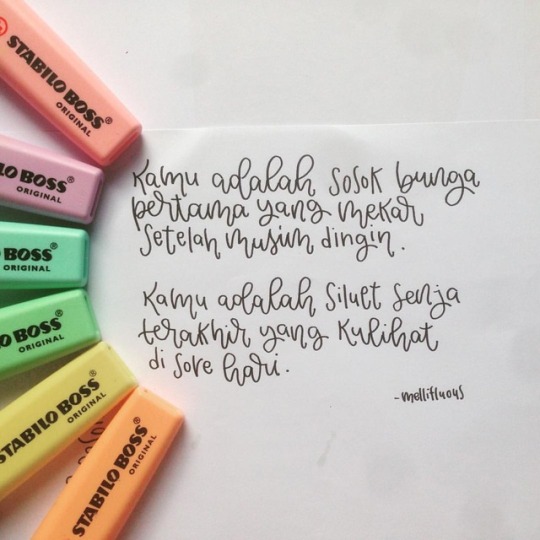 STABILO BOSS®
ORIGINAL
LO BOSS®
ORIGINAL
BOSS®
ORIGINAL
LO BOSS®
ORIGINAL
STABILO BOSS®
ORIGINAL
STABILO BOSS®
ORIGINAL
Kamu adalah sosok bunga
pertama yang mekar
setelah musim dingin.
Kamu adalah siluet senja
terakhir yang kulihat
di sore hari.
-mellifluous